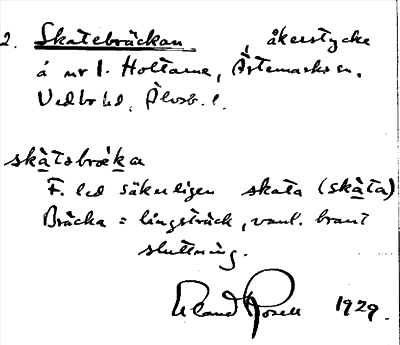 2. Skatebräckan, åkerstycke
å nr 1. Holtarne, Ärtemarks sn.
Vedbo hd, Älvsb. l.
skàtabrä̀ka
F. led säkerligen skata (skàta)
Bräcka = långsträck, vanl. brant
sluttning.
Erland Rosell 1929.